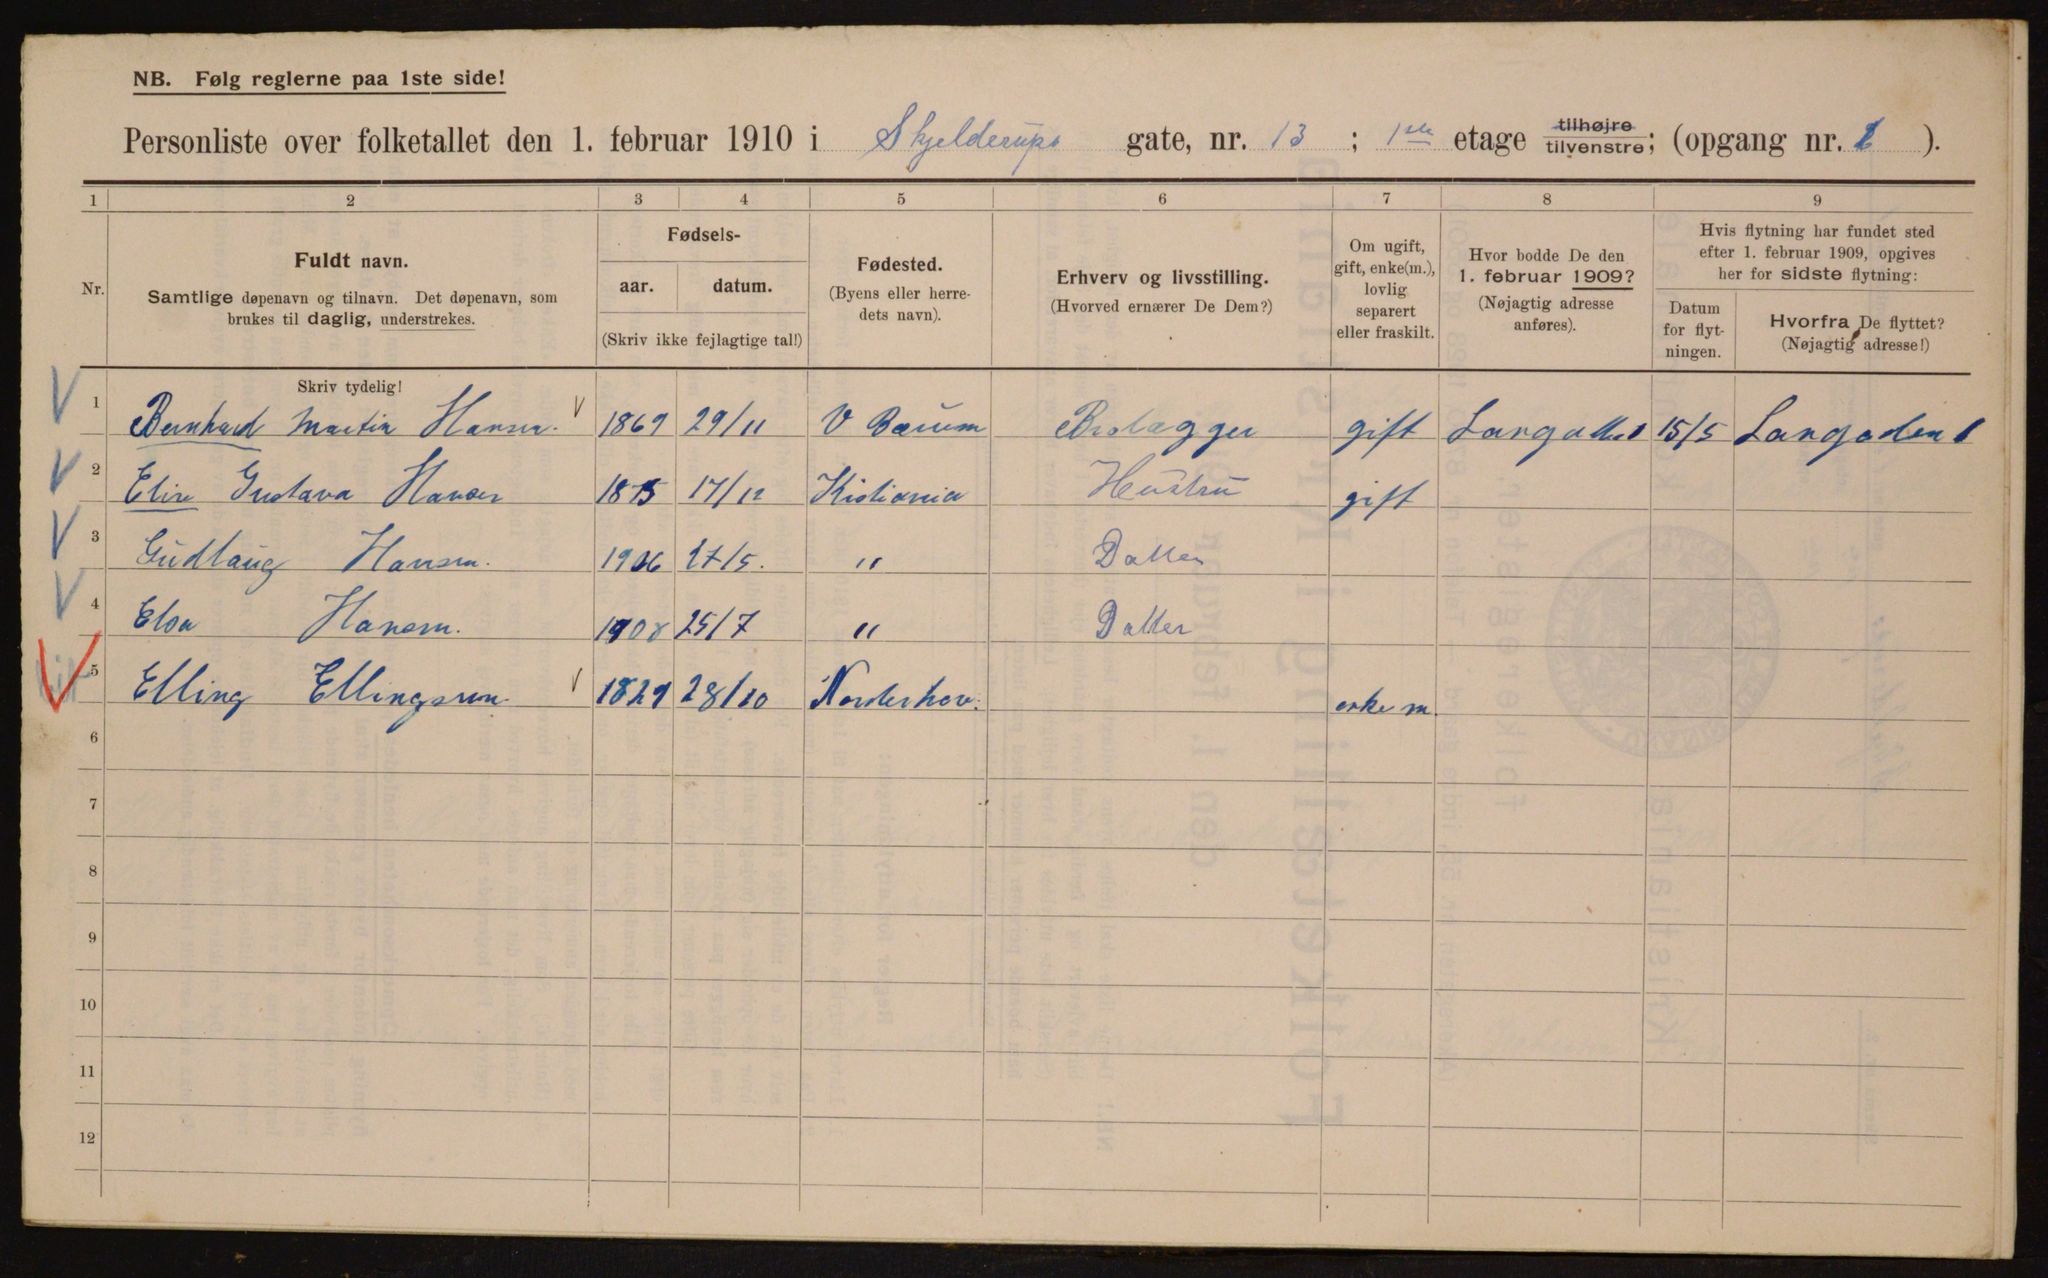 NB. Følg reglerne paa 1ste side!
Personliste over folketallet den 1. februar 1910 i Skjelderups gate, nr. 13 ; 1ste etage tilhøjre tilvenstre; (opgang nr. ).
1 2 3 4 5 6 7 8 9
Nr.
Fuldt navn.
Samtlige døpenavn og tilnavn. Det døpenavn, som
brukes til daglig, understrekes.
Fødsels-
aar. datum.
(Skriv ikke fejlagtige tal!)
Fødested.
(Byens eller herre-
dets navn).
Erhverv og livsstilling.
(Hvorved ernærer De Dem?)
Om ugift,
gift, enke(m.),
lovlig
separert
eller fraskilt.
Hvor bodde De den
1. februar 1909?
(Nøjagtig adresse
anføres).
Hvis flytning har fundet sted
efter 1. februar 1909, opgives
her for sidste flytning:
Datum
for flyt-
ningen.
Hvorfra De flyttet?
(Nøjagtig adresse!)
Skriv tydelig!
1 Bernhard Martin Hansen. 1869 29/11 V Bærum Brolægger gift 15/5
2 Elise Gustava Hansen 1875 17/12 Kristiania Hustru gift
3 Gudlaug Hansen. 1906 27/5. " Datter
4 Elsa Hansen. 1908 25/7 " Datter
5 Elling Ellingsen 1829 28/10 Norderhov. enkem.
6
7
8
9
10
11
12